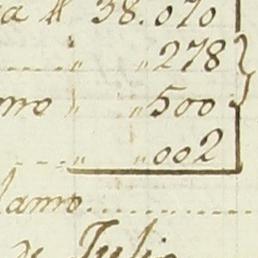 a # 38.070
" "278
mo " "500
" "002
lamo
de Julio